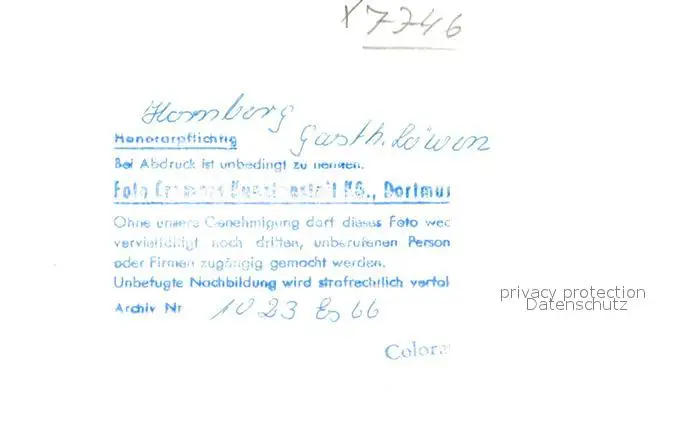 x7746
Homberg
Gasth. Löwen
Honorarpflichtig
Bei Abdruck ist unbedingt zu nennen:
Foto Cramers Kunstanstalt KG., Dortmu
Ohne unsere Genehmigung darf dieses Foto wed
vervielfältigt noch dritten, unberufenen Person
oder Firmen zugängig gemacht werden.
Unbefugte Nachbildung wird strafrechtlich verfol
Archiv Nr 1023 Es 66
privacy protection
Datenschutz
Colora